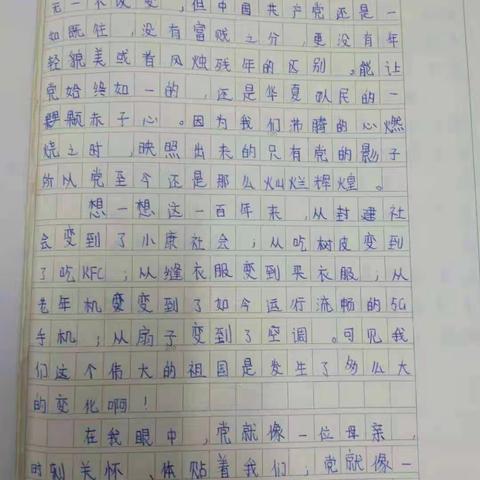 元一不改变，但中国共产党还是一
如既往，没有富贱之分，更没有年
轻貌美或者风烛残年的区别。能让
党始终如一的，还是华夏人民的一
颗颗赤子心。因为我们沸腾的心燃
烧之时，映照出来的只有党的影子
所以党至今还是那么灿烂辉煌。
想一想这一百年来，从封建社
会变到了小康社会；从吃树皮变到
了吃KFC；从缝衣服变到买衣服；从
老年机变变到了如今运行流畅的5G
手机；从扇子变到了空调。可见我
们这个伟大的祖国是发生了多么大
的变化啊！
在我眼中，党就像一位母亲，
时刻关怀、体贴着我们，党就像一